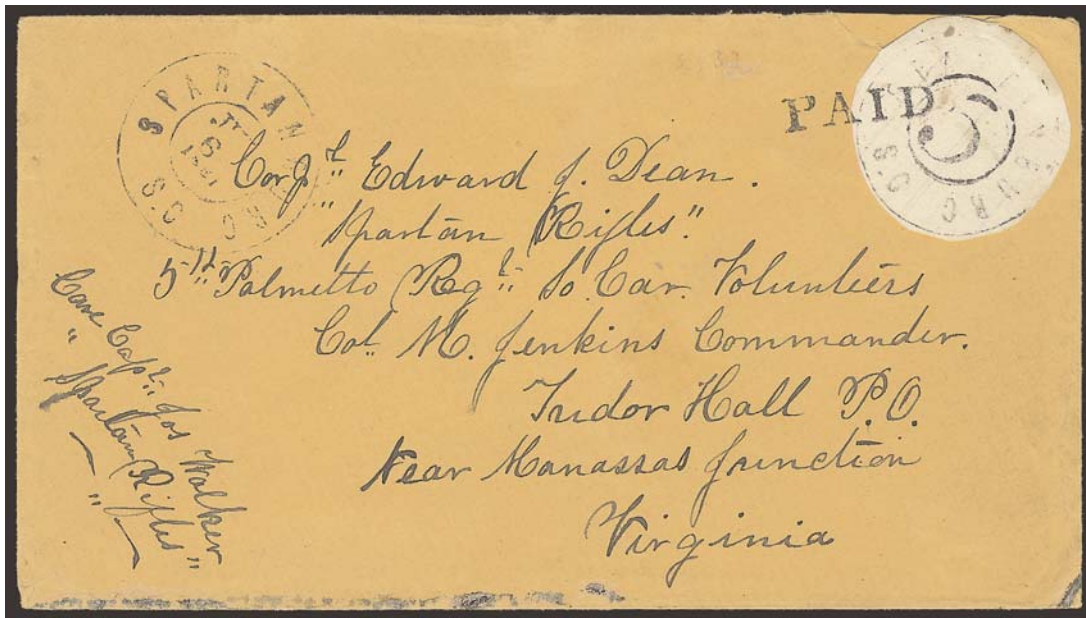 SPARTANBURG
S.C
6
PAID
5
S.C
Corpl: Edward J. Dean.
"Spartan Rifles"
5th Palmetto Regt: So. Car. Volunteers
Col. M. Jenkins Commander.
Tudor Hall P.O.
Near Manassas Junction
Virginia
Care Capt: Jos Walker
"Spartan Rifles"